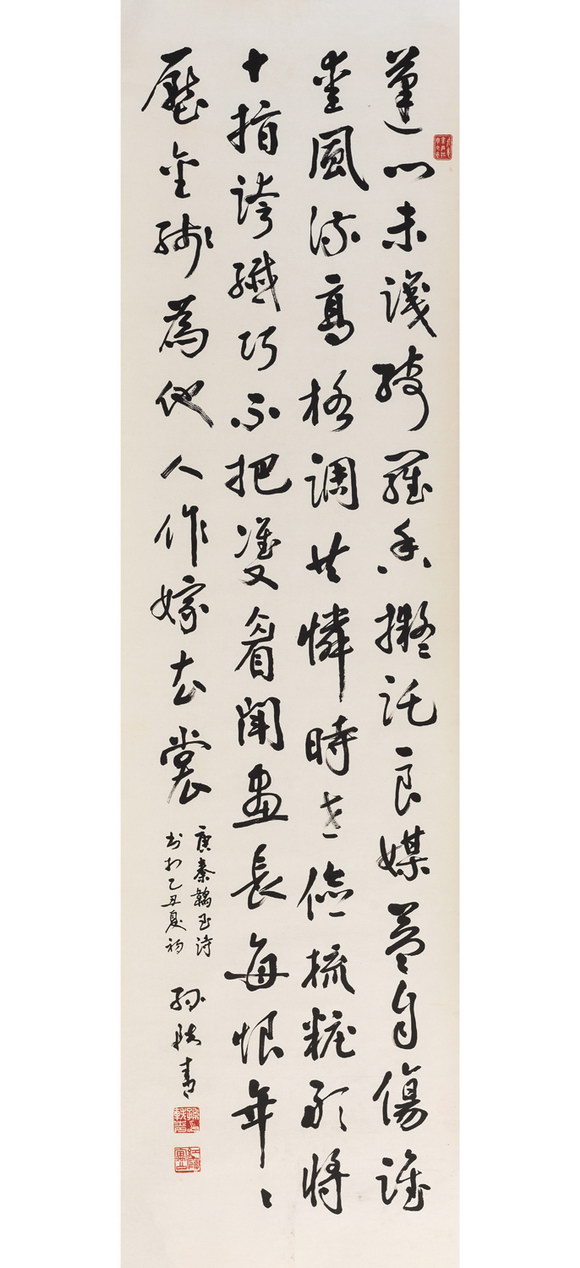 蓬門未識綺羅香擬託良媒益自傷誰
愛風流高格調共憐時世儉梳粧敢將
十指誇纖巧不把雙眉鬭畫長每恨年〻
壓金線為他人作嫁衣裳
唐秦韜玉诗
书於乙丑夏初
孫軼青